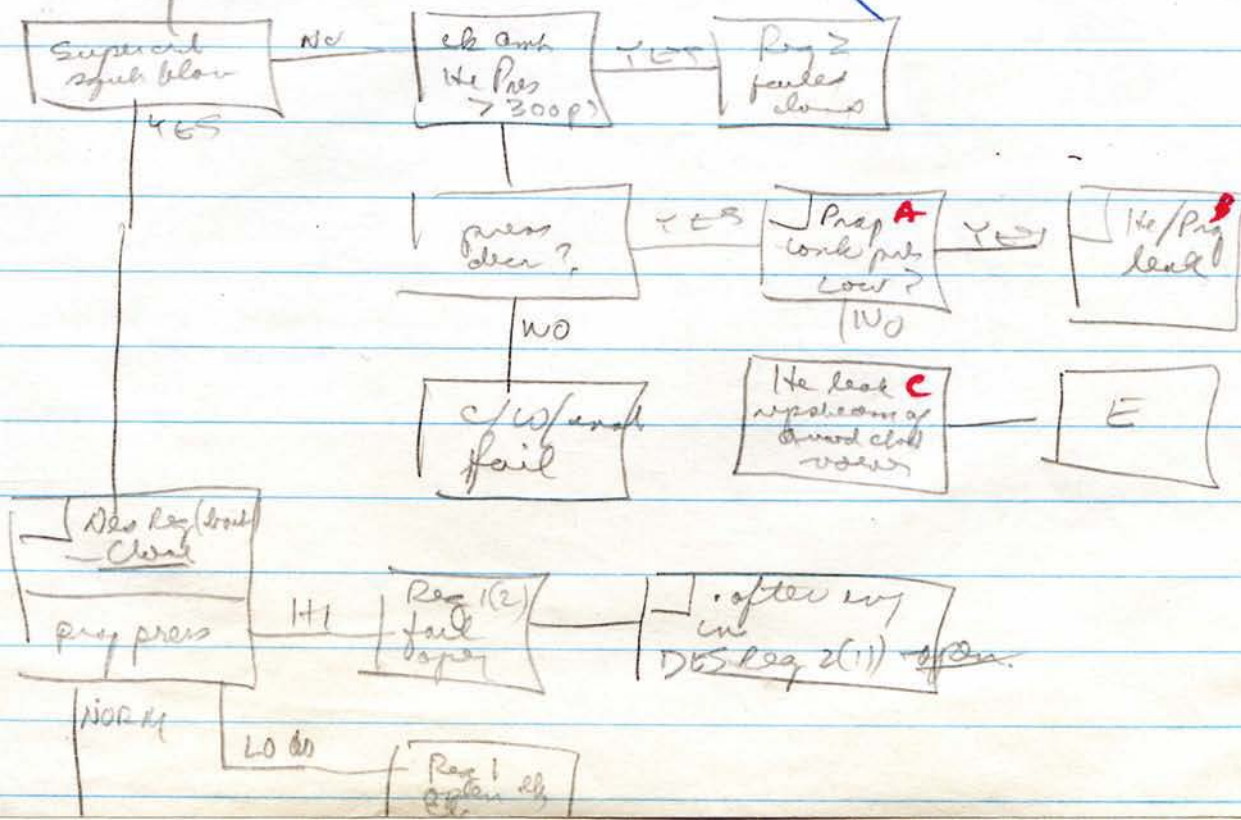 Supercrit
squib blow
NO
ck amb
He Pres
> 300p?
YES
Reg 2
failed
closed
YES
press
decr?
YES
Prop A
tank pres
Low?
YES
He/Prop B
leak
NO
NO
c/w/
fail
He leak C
upstream of
quad check
valves
E
Des Reg
Close
prop press
HI
Reg 1(2)
fail
open
. after
DES Reg 2(1) open.
NORM
LO
Reg 1
open